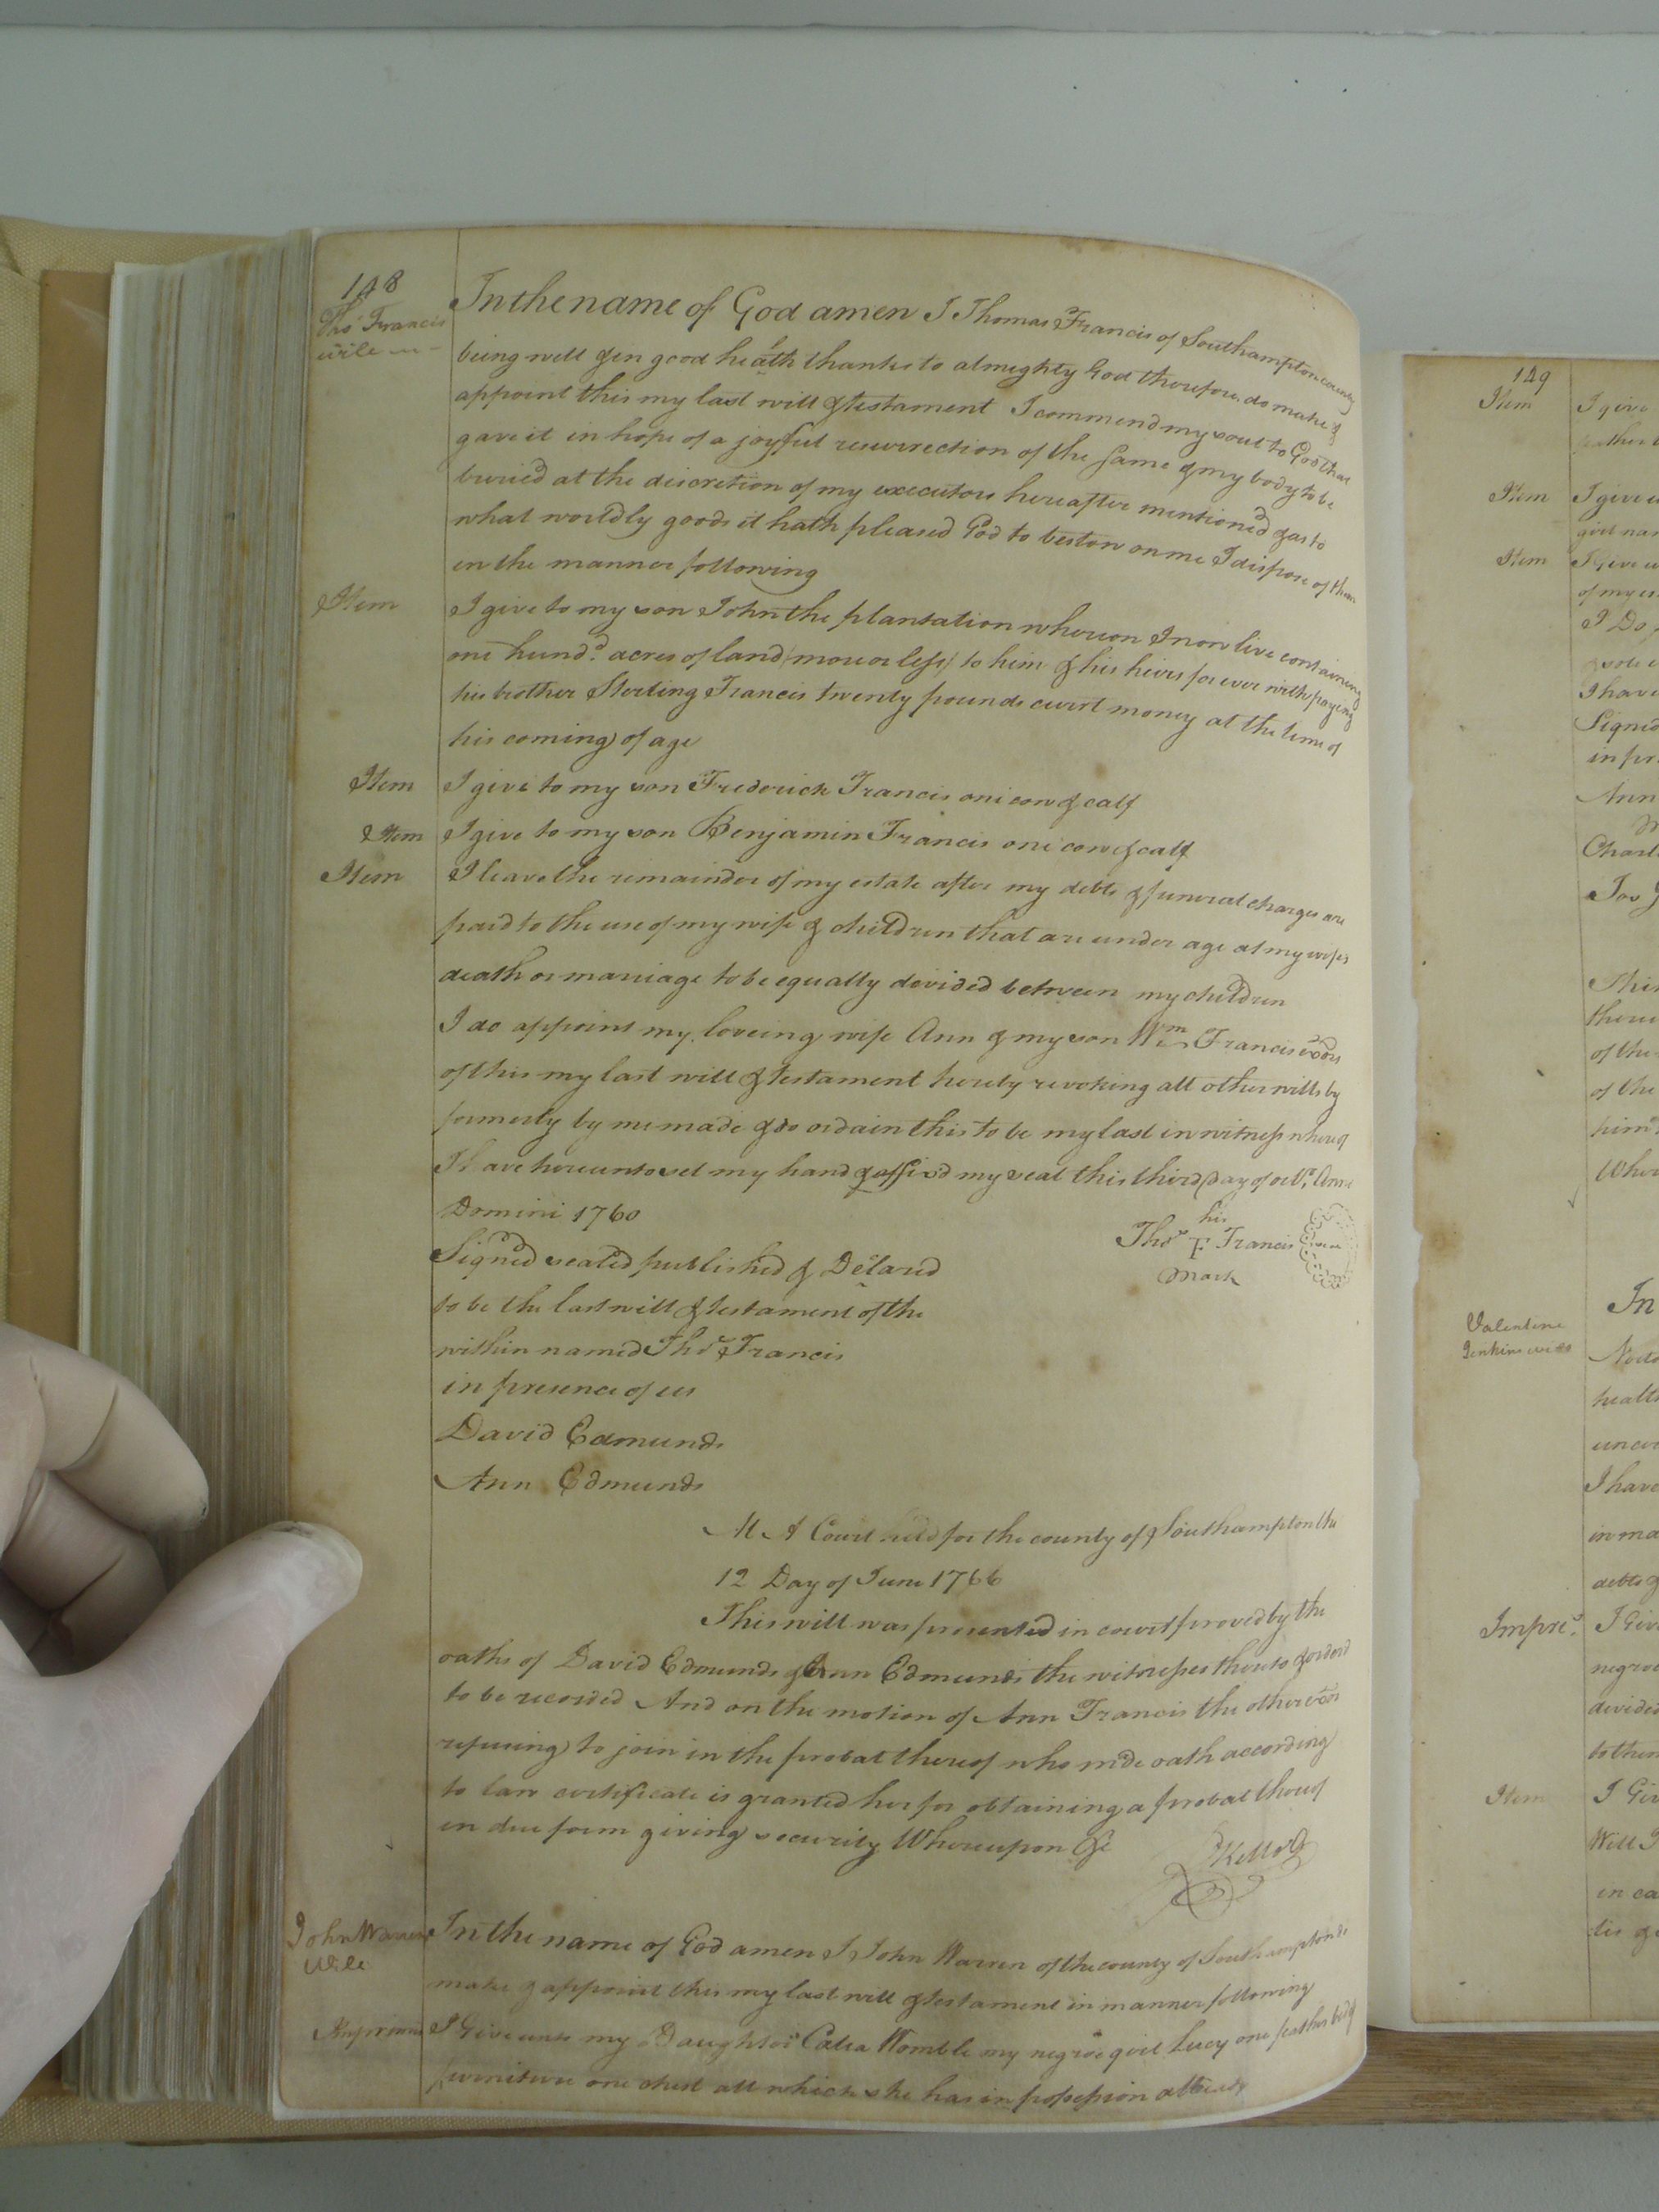 148
Thos. Francis
will
In the name of God amen I Thomas Francis of Southampton county
being well & in good heath thanks to almighty God therefore do make &
appoint this my last will & testament I commend my soul to God that
gave it in hope of a joyful resurrection of the same & my body to be
buried at the discretion of my executors hereafter mentioned & as to
what worldly goods it hath pleased God to bestow on me I dispose of them
in the manner following
Item I give to my son John the plantation whereon I now live containing
one hund.d acres of land (more or less) to him & his heirs for ever with paying
his brother Sterling Francis twenty pounds curr't money at the time of
his coming of age
Item I give to my son Frederick Francis one cow & calf
Item I give to my son Benjamin Francis one cow & calf
Item I leave the remainder of my estate after my debts & funeral charges are
paid to the use of my wife & children that are under age at my wifes
death or marriage to be equally devided between my children
I do appoint my loveing wife Ann & my son Wm Francis exors
of this my last will & testament hereby revoking all other wills by
formerly by me made & do ordain this to be my last in witness whereof
I have hereunto set my hand & affix'd my seal this third day of Anno
Domini 1760
his
Thos. F Francis
mark
Signed sealed published & Delared
to be the last will & testament of the
within named Thos. Francis
in presence of us
David Edmunds
Ann Edmunds
At A Court held for the county of Southampton the
12 Day of June 1766
This will was presented in court proved by the
oaths of David Edmunds & Ann Edmunds the witnesses thereto & orderd
to be recorded And on the motion of Ann Francis the other exor
refusing to join in the probat thereof who made oath according
to law certificate is granted her for obtaining a probat thereof
in due form giving security Whereupon &c
John Warren
will
In the name of God amen I John Warren of the county of Southampton do
make & appoint this my last will & testament in manner following
Imprimis I Give unto my Daughter Womble my negroe girl Lucy one feather bed &
furniture one chest all which she has in possession already
149
Item I give
Item I give
girl
Item I Give
of my
I Do
I have
Signed
in
Ann
Charl
there
of the
of the
Valentine
Jenkins will
In
health
I have
in
debts
Impri.s I Give
negroe
divided
to
Item I Giv
Will
in